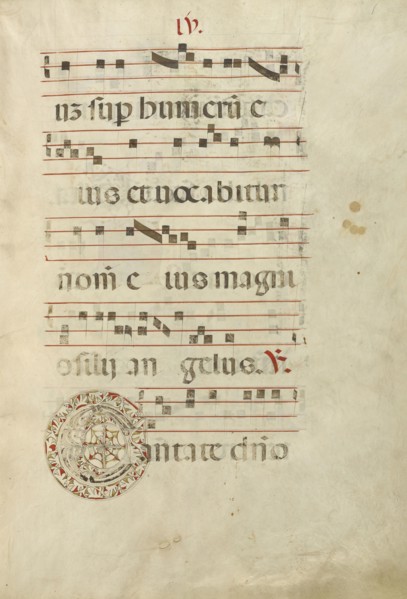 IV.
uʒ suꝑ humerū e
ius et uocabitur
nom̄ e ius magni
ↄsilij an gelus. ℣.
Cantate dn̄o